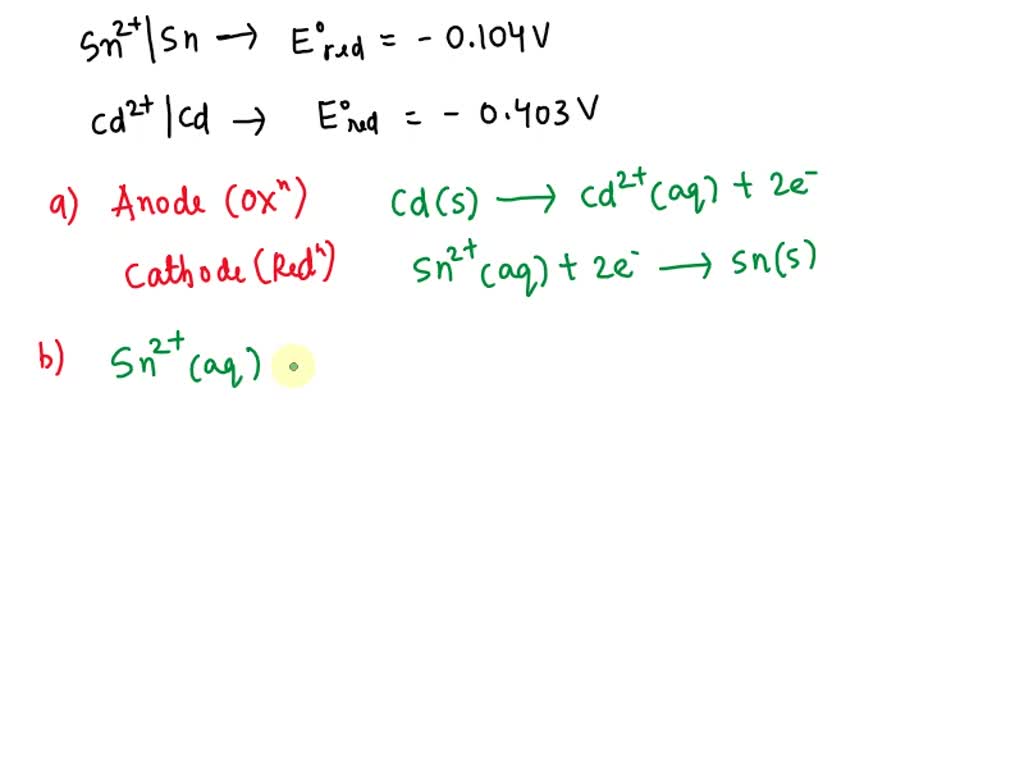 Sn²⁺|Sn → E°red = - 0.104 V
Cd²⁺|Cd → E°red = - 0.403 V
a) Anode (Oxⁿ) Cd(s) → Cd²⁺(aq) + 2e⁻
Cathode (Redⁿ) Sn²⁺(aq) + 2e⁻ → Sn(s)
b) Sn²⁺(aq)